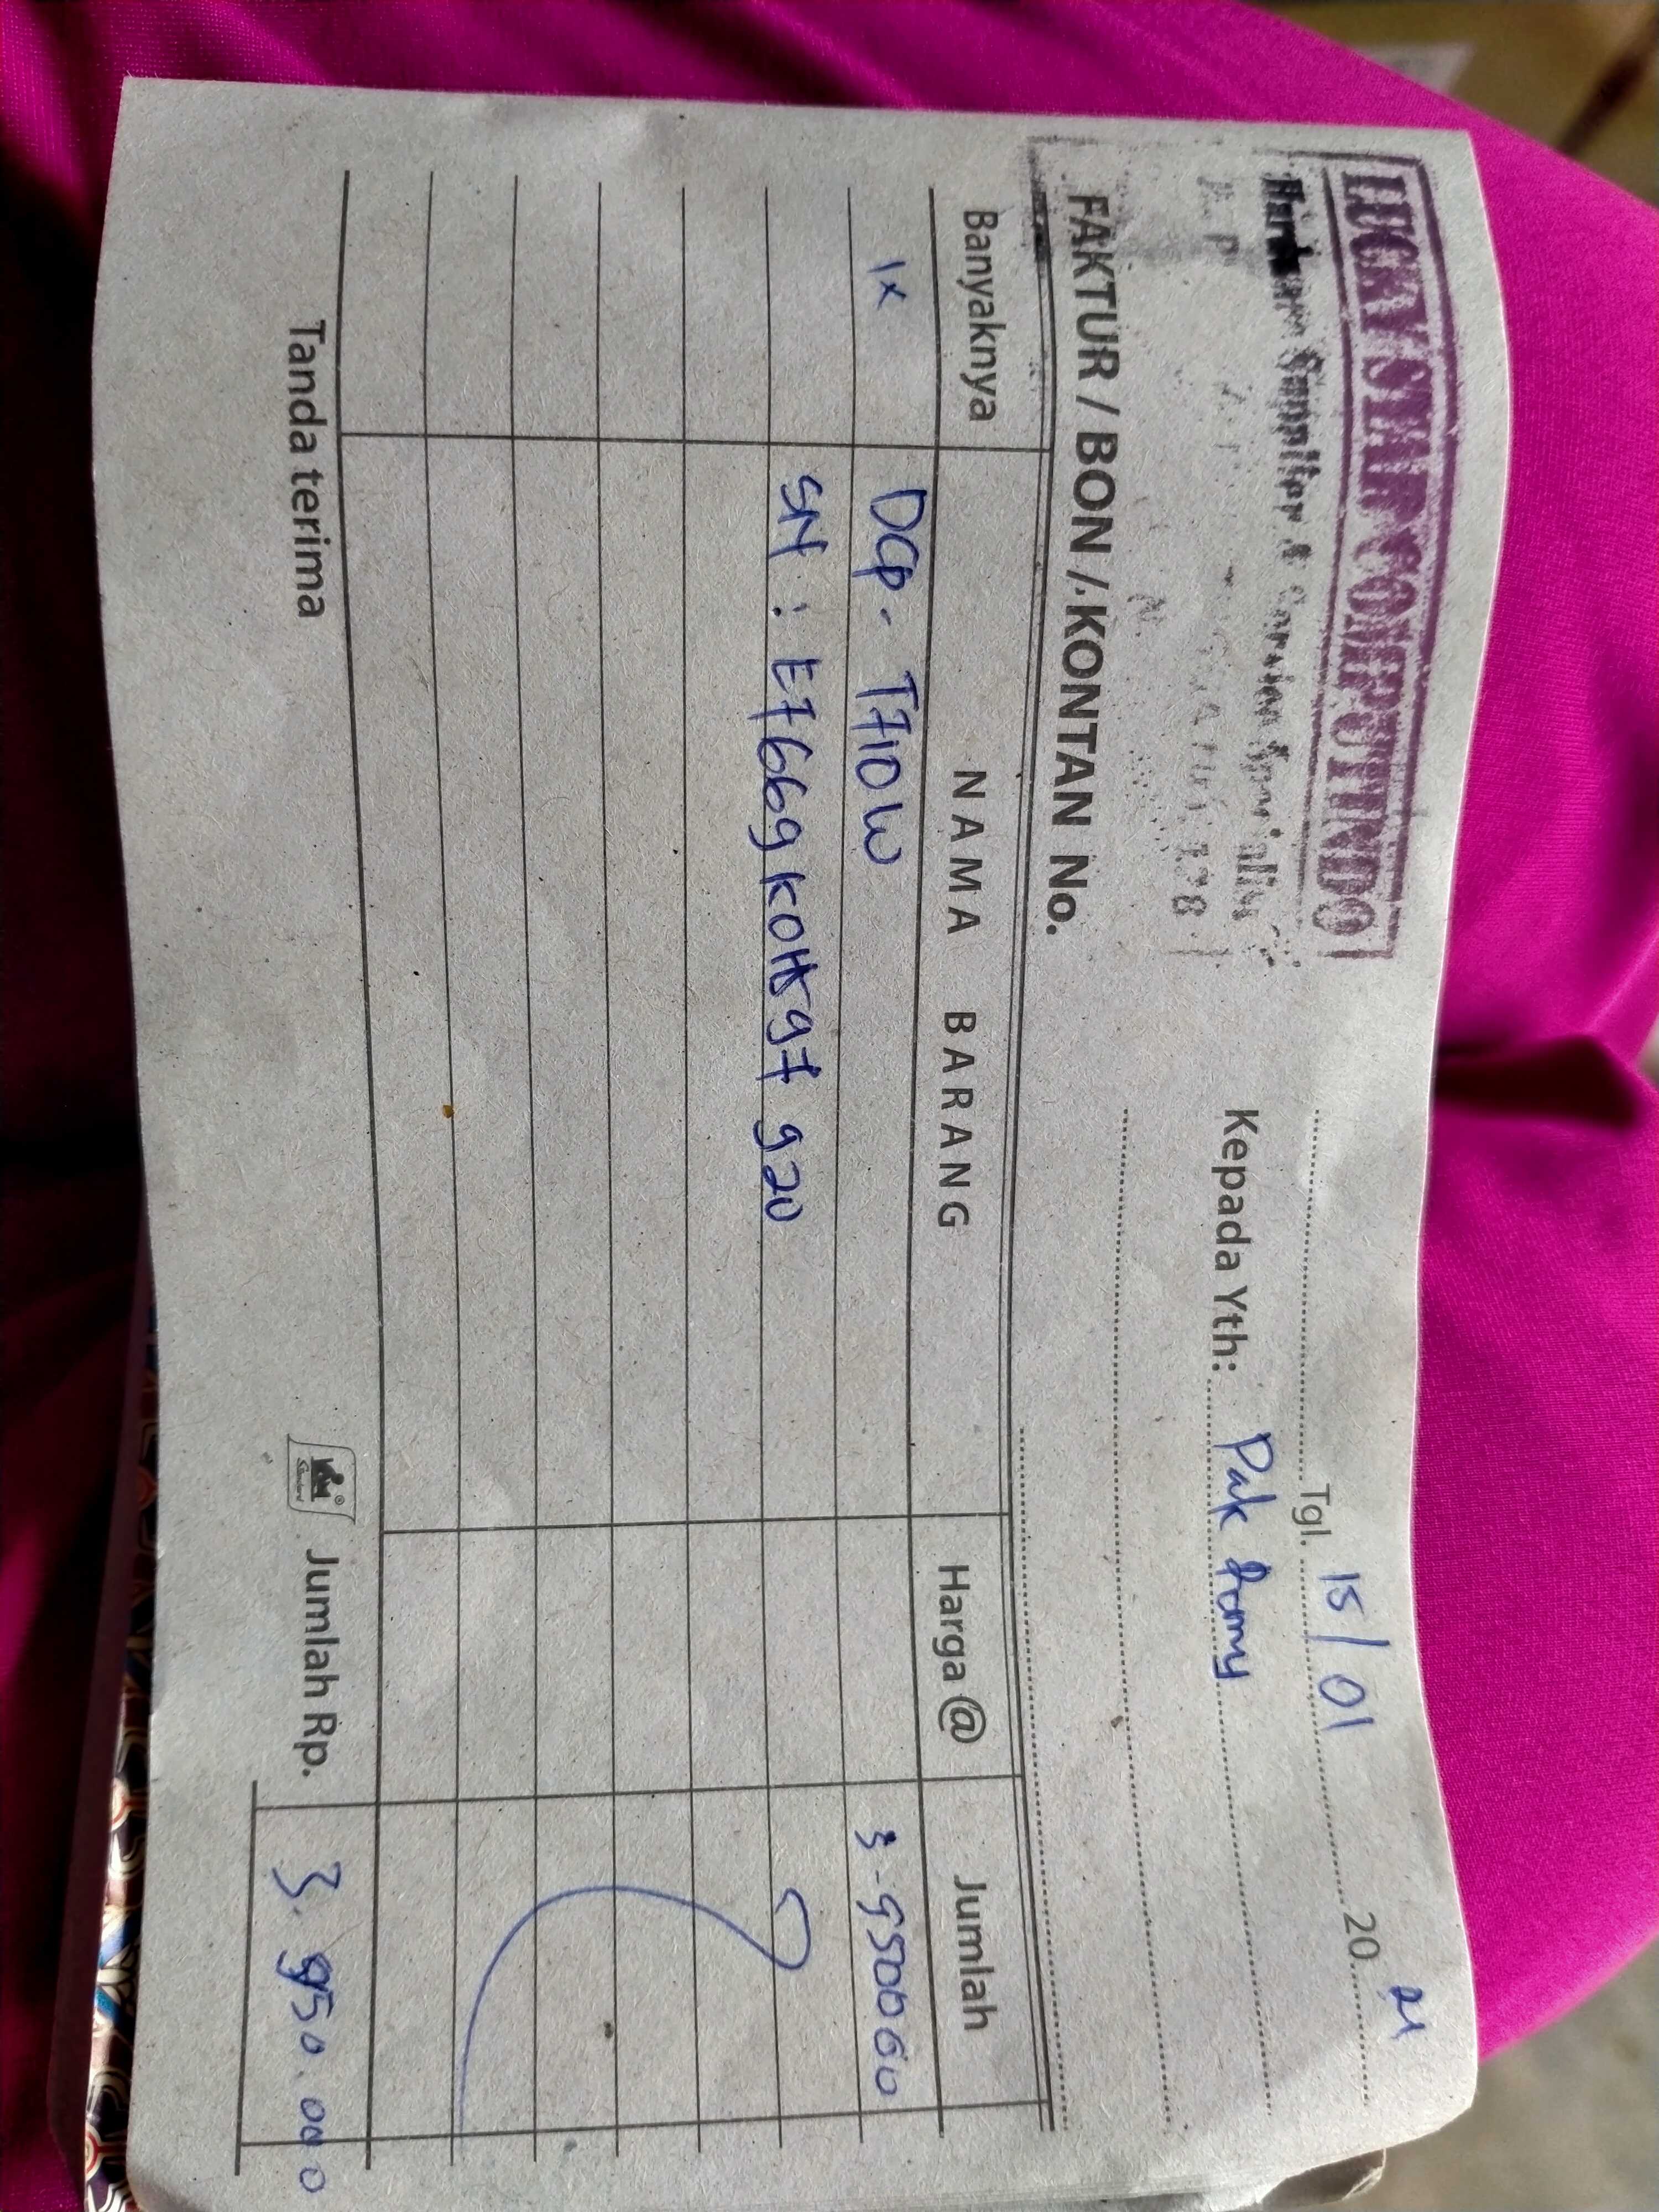 LUCKY STAR COMPUTINDO
Hardware Supplier & Service Specialist
Tgl. 15/01 20 21
Kepada Yth: Pak
FAKTUR / BON / KONTAN No.
Banyaknya NAMA BARANG Harga @ Jumlah
1x DCP- T710W 3-950000
SN : E7669K0H597920
Tanda terima Jumlah Rp. 3.950.000